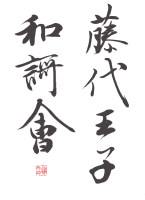 藤代王子
和謌會